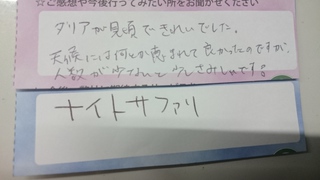 ☆ご感想や今後行ってみたい所をお聞かせください
ダリアが見頃できれいでした。
天候には何とか恵まれて良かったのですが、
人数が少ないと少しさみしいです。
ナイトサファリ